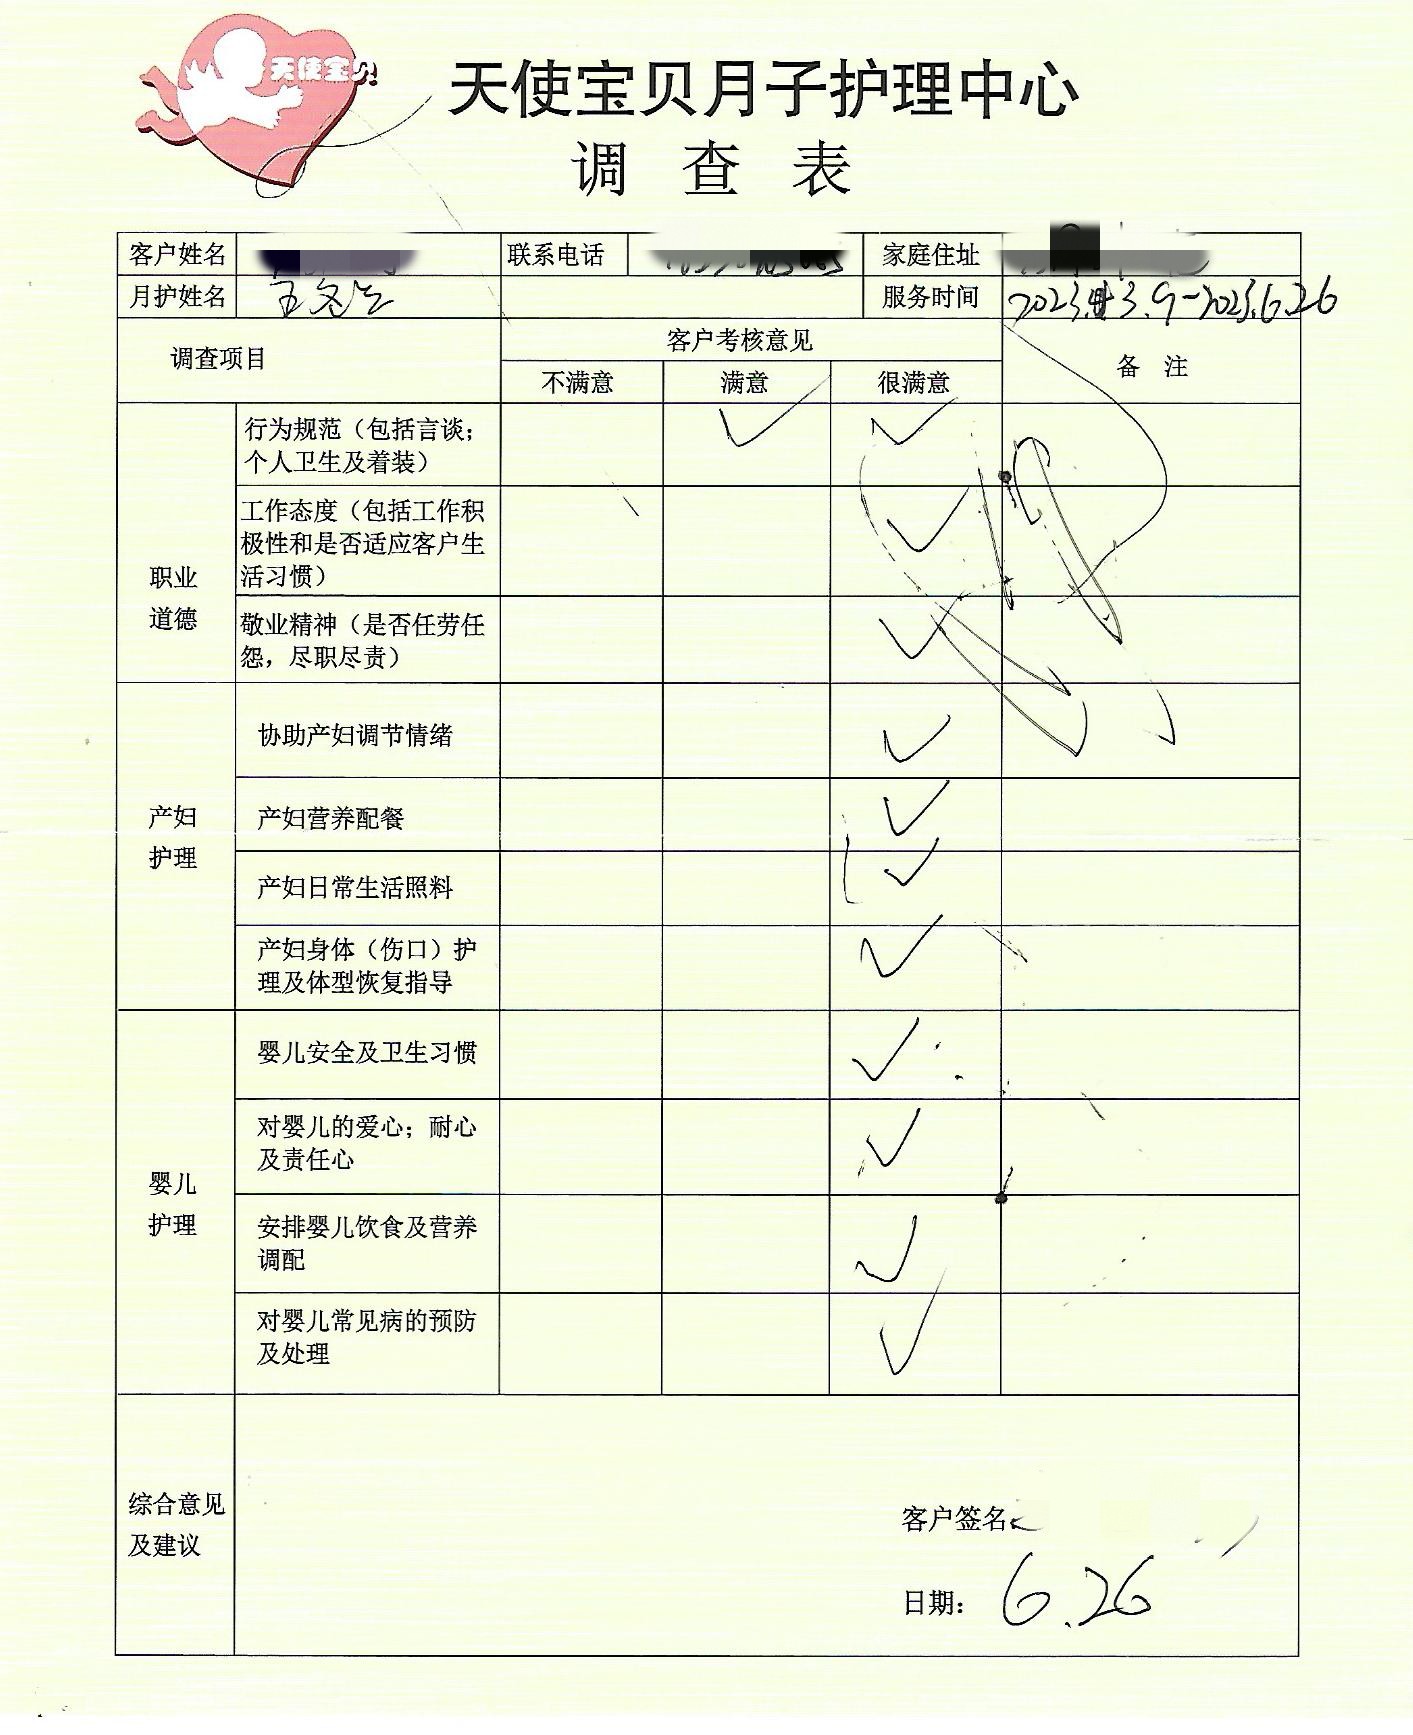 天使宝贝
天使宝贝月子护理中心
调 查 表
客户姓名 联系电话 家庭住址
月护姓名 服务时间 2023.3.9-2023.6.26
调查项目 客户考核意见 备 注
不满意 满意 很满意
职业
道德
行为规范（包括言谈；
个人卫生及着装） ✓ ✓
工作态度（包括工作积
极性和是否适应客户生
活习惯） ✓
敬业精神（是否任劳任
怨，尽职尽责） ✓
产妇
护理
协助产妇调节情绪 ✓
产妇营养配餐 ✓
产妇日常生活照料 ✓
产妇身体（伤口）护
理及体型恢复指导 ✓
婴儿
护理
婴儿安全及卫生习惯 ✓
对婴儿的爱心；耐心
及责任心 ✓
安排婴儿饮食及营养
调配 ✓
对婴儿常见病的预防
及处理 ✓
综合意见
及建议
客户签名
日期： 6.26